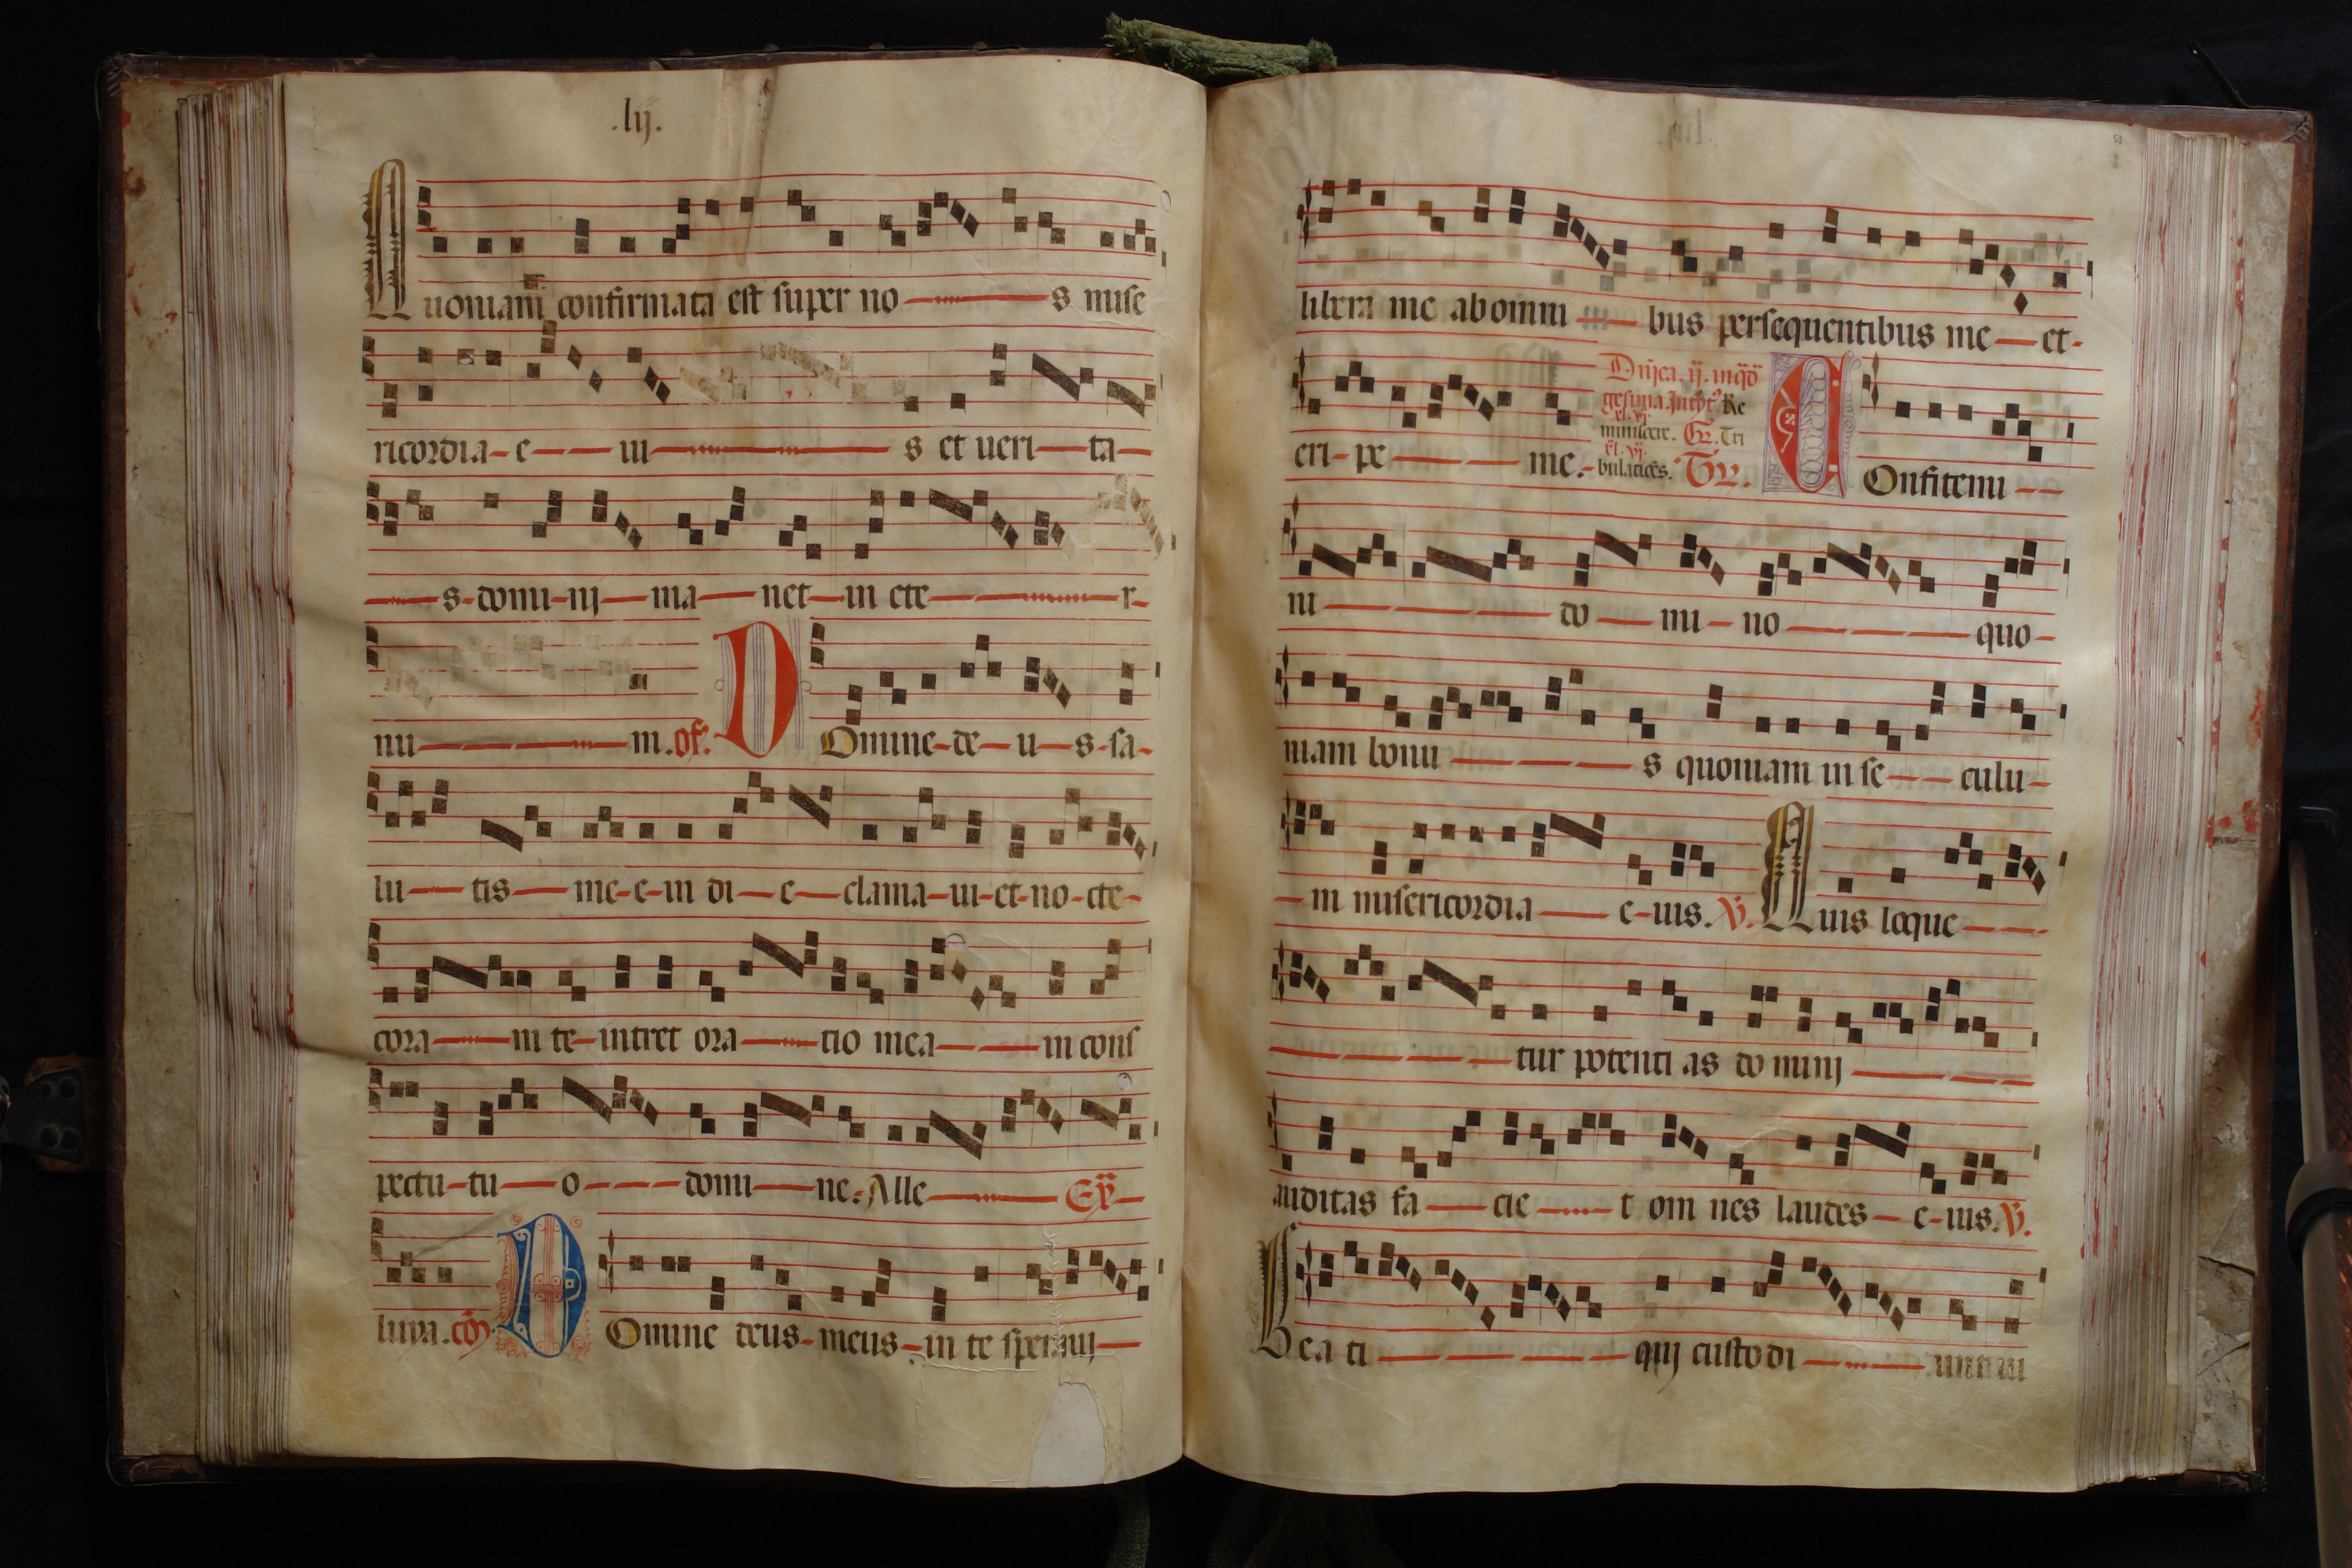 .lij.
Quoniam confirmata est super no s mise
ricordia e iu s et ueri ta
s domi nij ma net in ete r
nu m. of. Domine de u s sa
lu tis me e in di e clama ui et no cte
cora m te intret ora tio mea in cons
pectu tu o domi ne. Alle EỸ
luya. cõ Domine deus meus in te speraui
53
libera me ab omni bus persequentibus me et
eri pe me.
Dñica. ij. in q̃d
gesima. Re
miniscere. Gr. Tri
bulatiões. Tr. Confitemi
ni do mi no quo
niam bonu s quoniam in se culu
m misericordia e ius. V. Quis loque
tur potenti as do minij
auditas fa cie t om nes laudes e ius. V.
Bea ti quij custodi unt iu